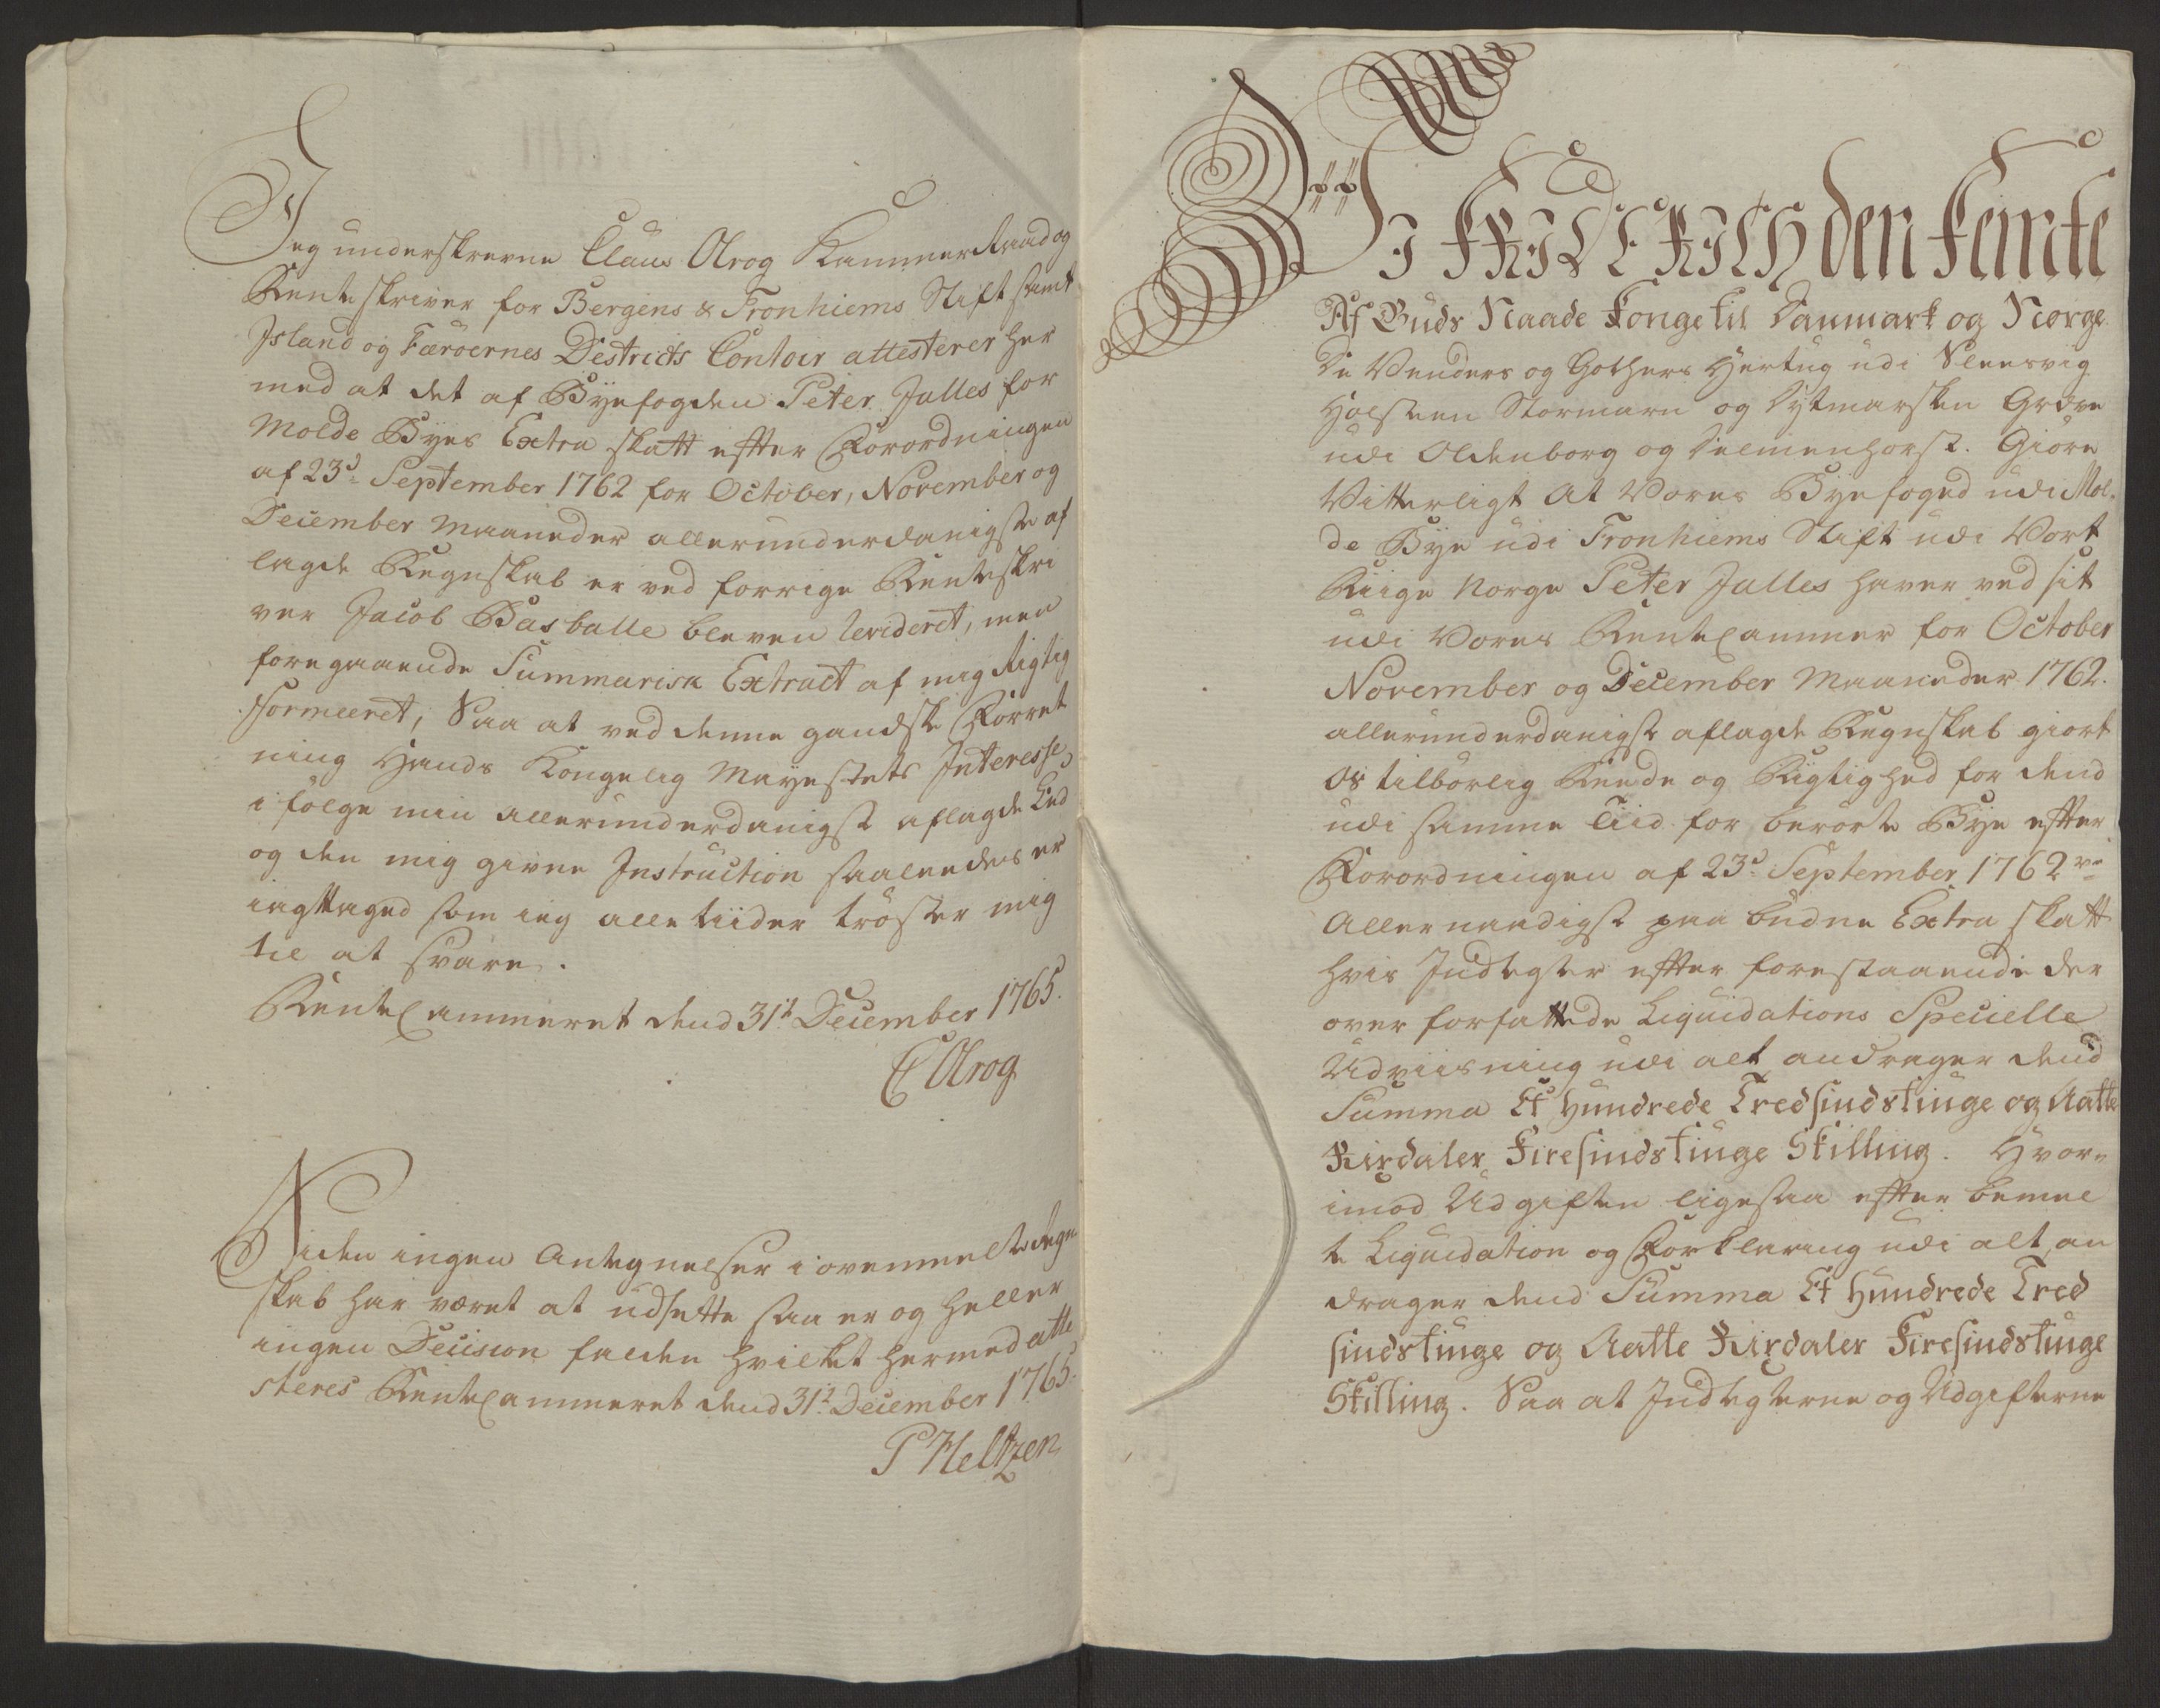 Jeg underskrevne Claus Olrog Kammer Raad og
Renteskriver for Bergens & Tronhiems Stift samt
Island og Færoernes Destricts Contoir attesterer her
med at det af Byefogden Peter Jalles for
Molde Byes Extra skatt efter Forordningen
af 23d September 1762 for October, November og
December Maaneder allerunderdanigste af
lagde Regnskab er ved forrige Renteskri
ver Jacob Basballe bleven revideret, men
foregaaende Summarisk Extract af mig Rigtig
formeeret, Saa at ved denne gandske Forret
ning Hands Kongelig Mayestets Interesse,
i følge min allerunderdanigst aflagde Eed
og den mig givne Instruction saaleedes er
iagttaged som ieg alle tiider trøster mig
til at svare.
RenteCammeret dend 31t December 1765.
C Olrog
Siden ingen Antegnelser i ovenmelte Regn
skab har været at udsætte saa er og heller
ingen Decision falden hvilket hermed atte
steres RenteCammeret dend 31t December 1765.
P Heltzen
VI FRIDERICH den Femte
Af Guds Naade Konge til Danmark og Norge
De Venders og Gothers Hertug udi Sleesvig
Holsteen Stormarn og Dytmarsken Greve
udi Oldenborg og Delmenhorst. Giøre
Vitterligt At Vores Byefoged udi Mol-
de Bye udi Tronhiems Stift udi Vort
Riige Norge Peter Jalles haver ved sit
udi Vores RenteCammer for October
November og December Maaneder 1762.
allerunderdanigst aflagde Regnskab giort
Os tilbørlig Reede og Rigtighed for dend
udi samme Tiid for berørte Bye efter
Forordningen af 23d September 1762ve
Allernaadigst paa budne Extra skatt
hvis Indtegter efter forestaaende der
over forfattede Liquidations Specielle
Udviisning udi alt andrager dend
Summa Et Hundrede Tredsindstiuge og Aatte
Rixdaler Firesindstiuge Skilling. Hvor-
imod Udgiften ligesaa efter bemel
te Liquidation og Forklaring udi alt, an
drager dend Summa Et Hundrede Tred
sindstiuge og Aatte Rixdaler Firesindstiuge
Skilling. Saa at Indtegterne og Udgifterne